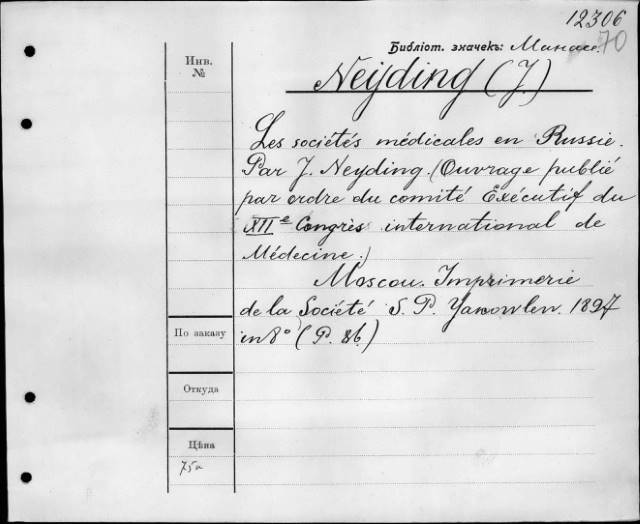 12306
70
Библіот. значекъ: Манасе.
Инв.
№
Neyding (J.)
Les sociétés médicales en Russie.
Par J. Neyding. (Ouvrage publié
par ordre du comité Exécutif du
XIIe Congrès international de
Médecine.)
Moscou. Imprimerie
de la Société S. P. Yakowlew. 1897
in 8° (P. 86.)
По заказу
Откуда
Цѣна